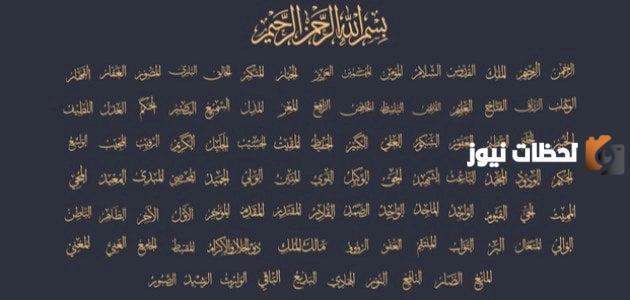 بسم الله الرحمن الرحيم
الرحمن الرحيم الملك القدوس السلام المؤمن المهيمن العزيز الجبار المتكبر الخالق البارئ المصور الغفار القهار
الوهاب الرزاق الفتاح العليم القابض الباسط الخافض الرافع المعز المذل السميع البصير الحكم العدل اللطيف
الغفور الشكور العلي الكبير الحفيظ المقيت الحسيب الجليل الكريم الرقيب المجيب الواسع
لحظات نيوز
الحكيم الودود المجيد الباعث الشهيد الحق الوكيل القوي المتين الولي الحميد المحصي المبدئ المعيد المحيي
المميت الحي القيوم الواجد الماجد الواحد الصمد القادر المقتدر المقدم المؤخر الأول الآخر الظاهر الباطن
الوالي المتعال البر التواب المنتقم العفو الرؤوف مالك الملك ذو الجلال والإكرام المقسط الجامع الغني المغني
المانع الضار النافع النور الهادي البديع الباقي الوارث الرشيد الصبور